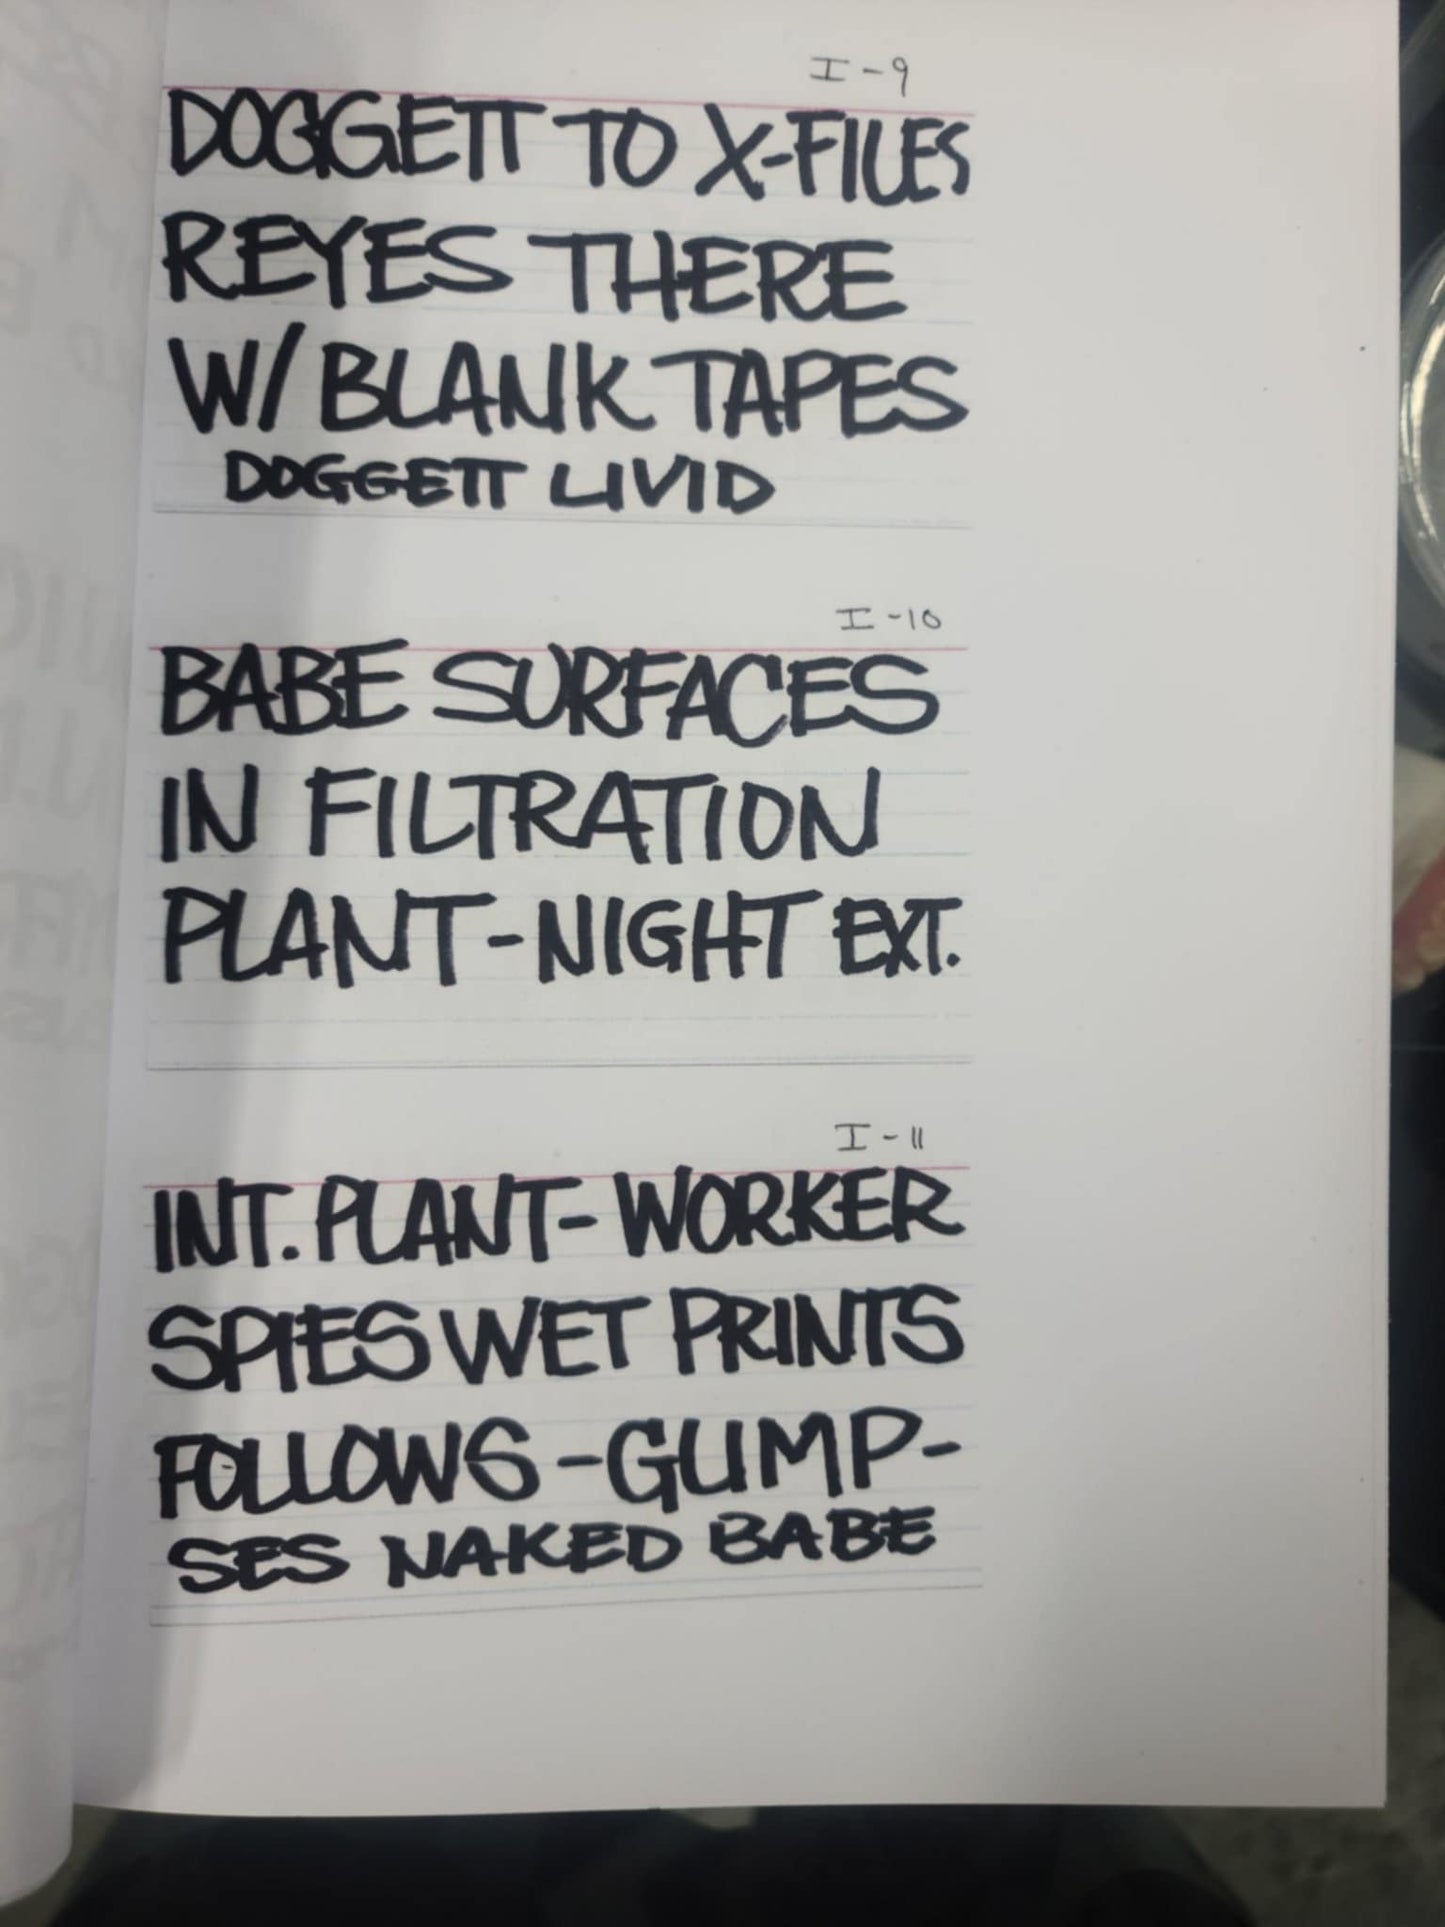 I-9
DOGGETT TO X-FILES
REYES THERE
W/ BLANK TAPES
DOGGETT LIVID
I-10
BABE SURFACES
IN FILTRATION
PLANT-NIGHT EXT.
I-11
INT. PLANT-WORKER
SPIES WET PRINTS
FOLLOWS-GLIMP-
SES NAKED BABE